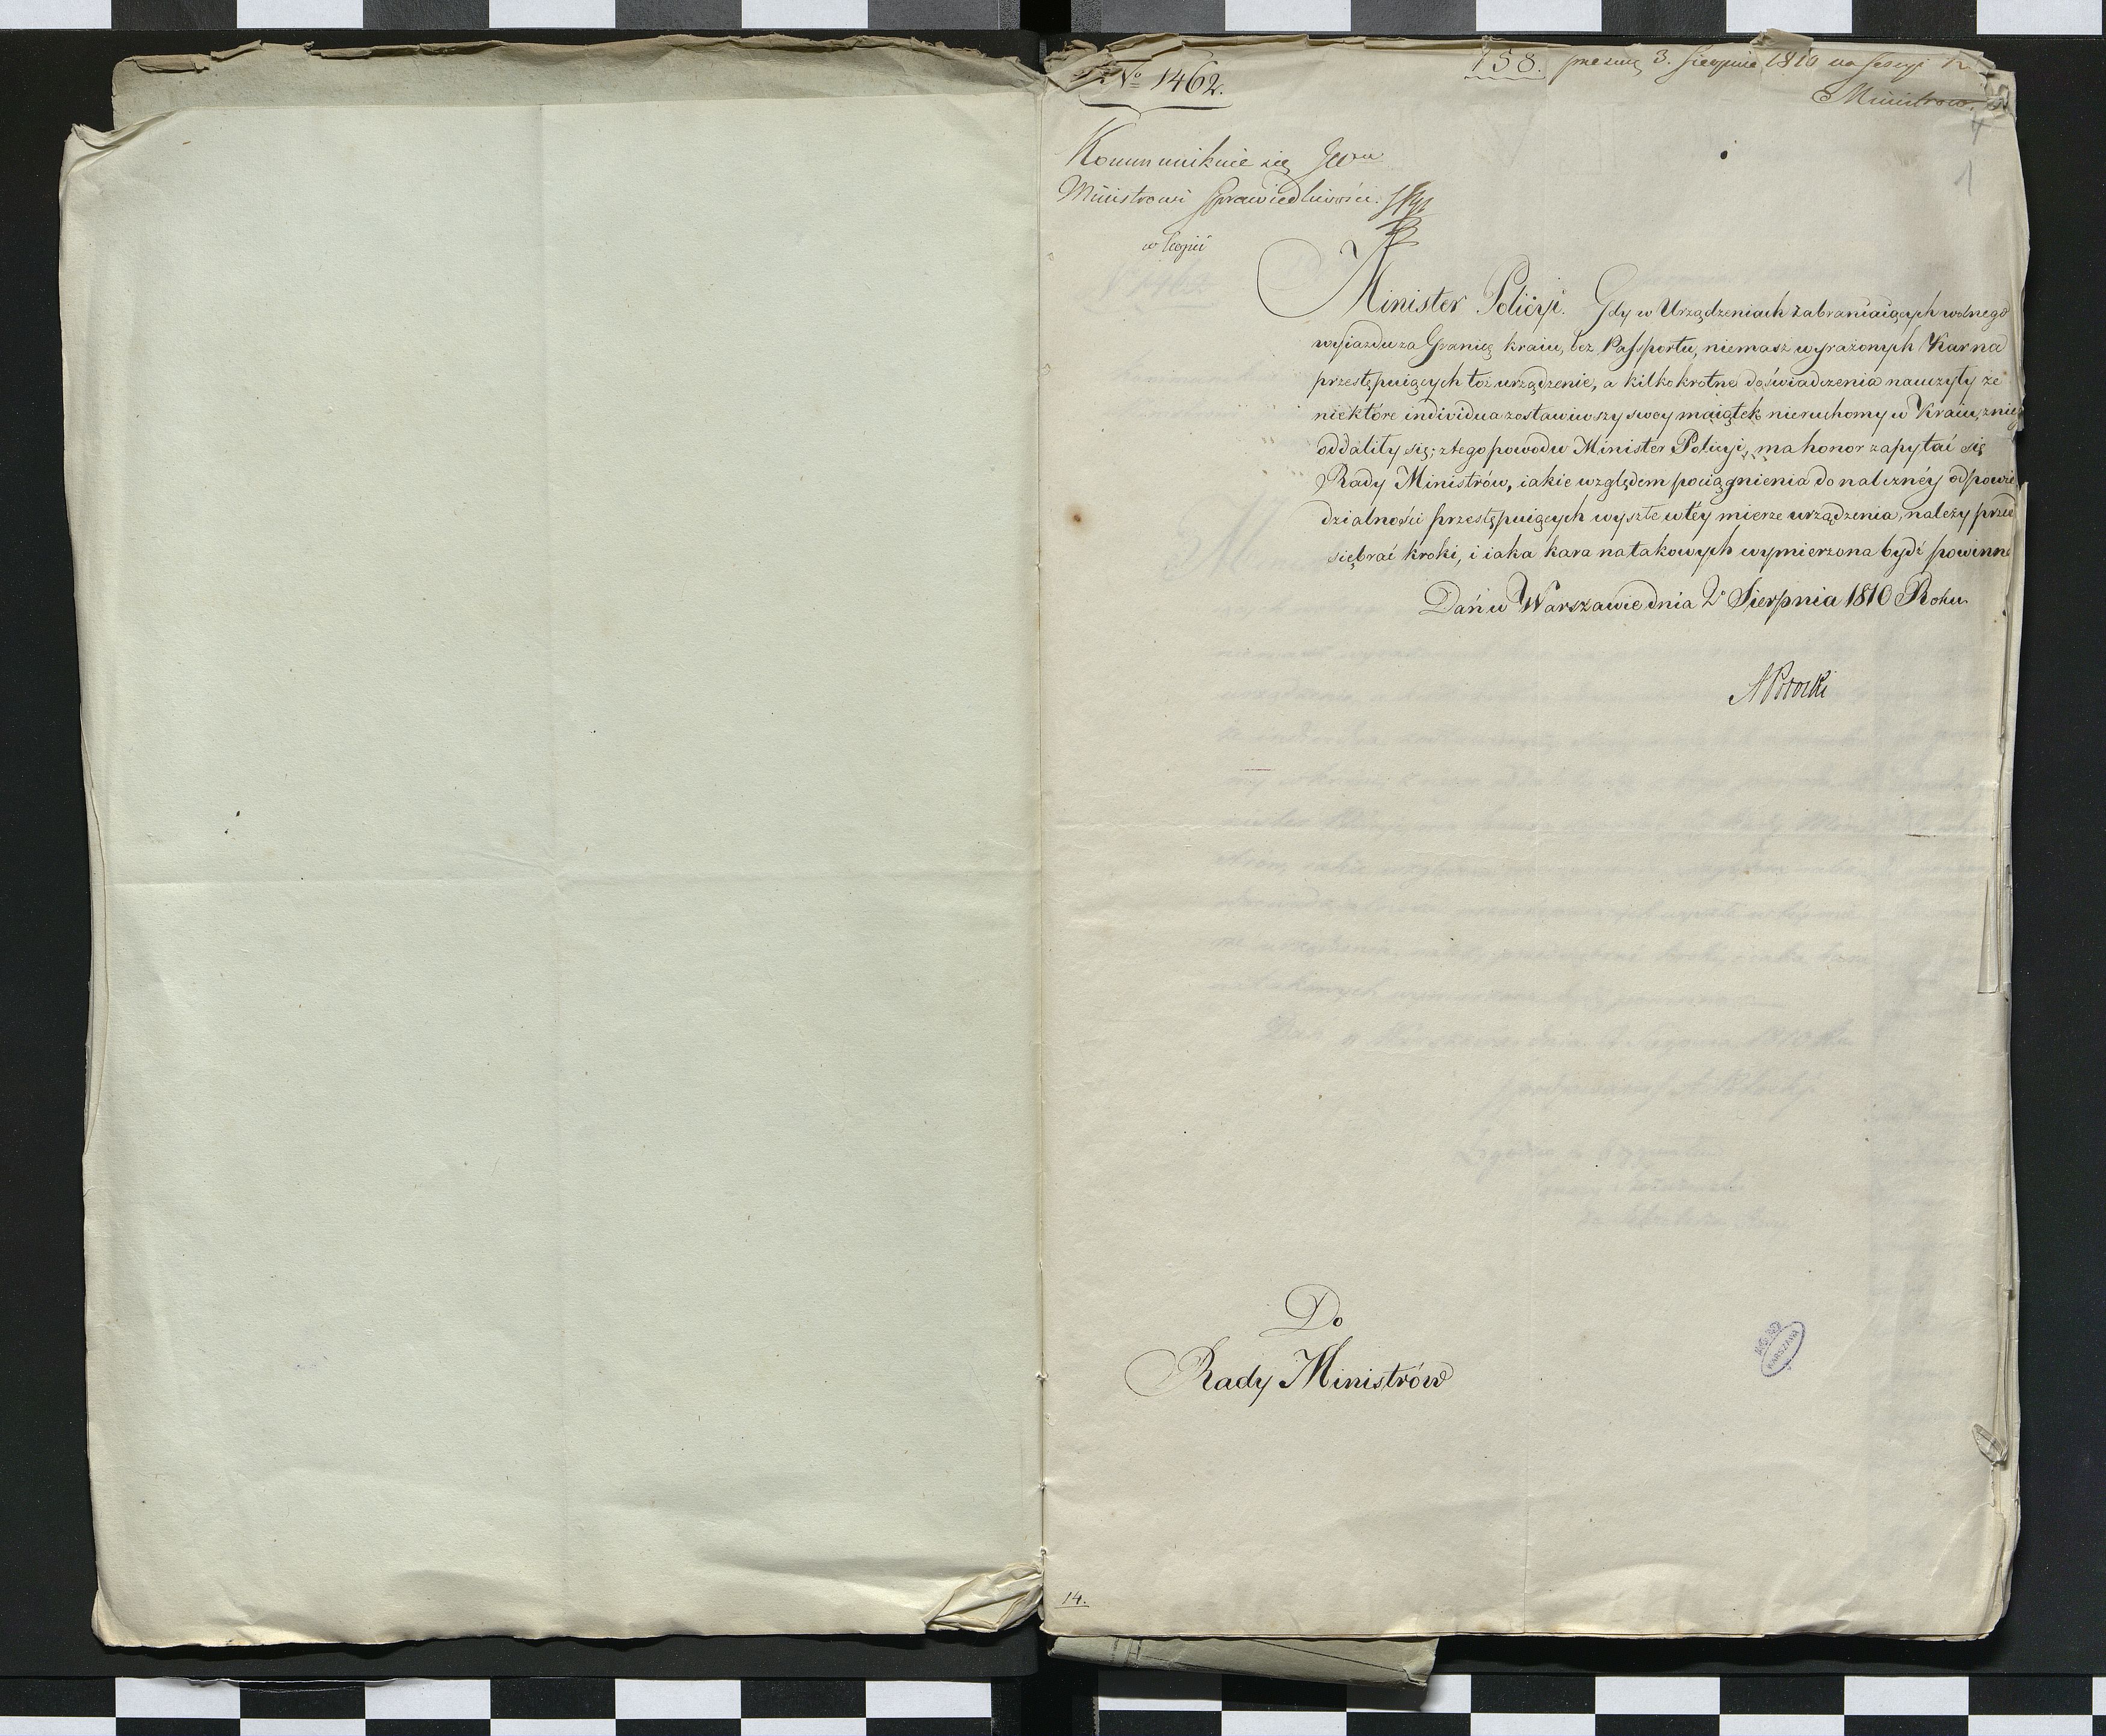 № 1462.
158. 3. Sierpnia 1810 na Sessyi
Ministrow.
1
Kommunikuie się
Ministrowi Sprawiedliwości
w kopii
Minister Policyi. Gdy w Urządzeniach zabraniaiących wolnego
wyiazdu za Granicę kraiu, bez Passportu, niemasz wyrażonych Kar na
przestępuiących toż urządzenie, a kilkokrotne doświadczenia nauczyły że
niektóre individua zostawiwszy swey maiątek nieruchomy w Kraiu, z nieg
oddaliły się; z tego powodu Minister Policyi, ma honor zapytać się
Rady Ministrów, iakie względem pociągnienia do nalezney odpowie
dzialności przestępuiących wyszłe w téy mierze urządzenia, należy przed
siębrać kroki, i iaka kara na takowych wymierzona bydź powinna
Dań w Warszawie dnia 2 Sierpnia 1810 Roku
A Potocki
Do
Rady Ministrów
WARSZAWA
14.